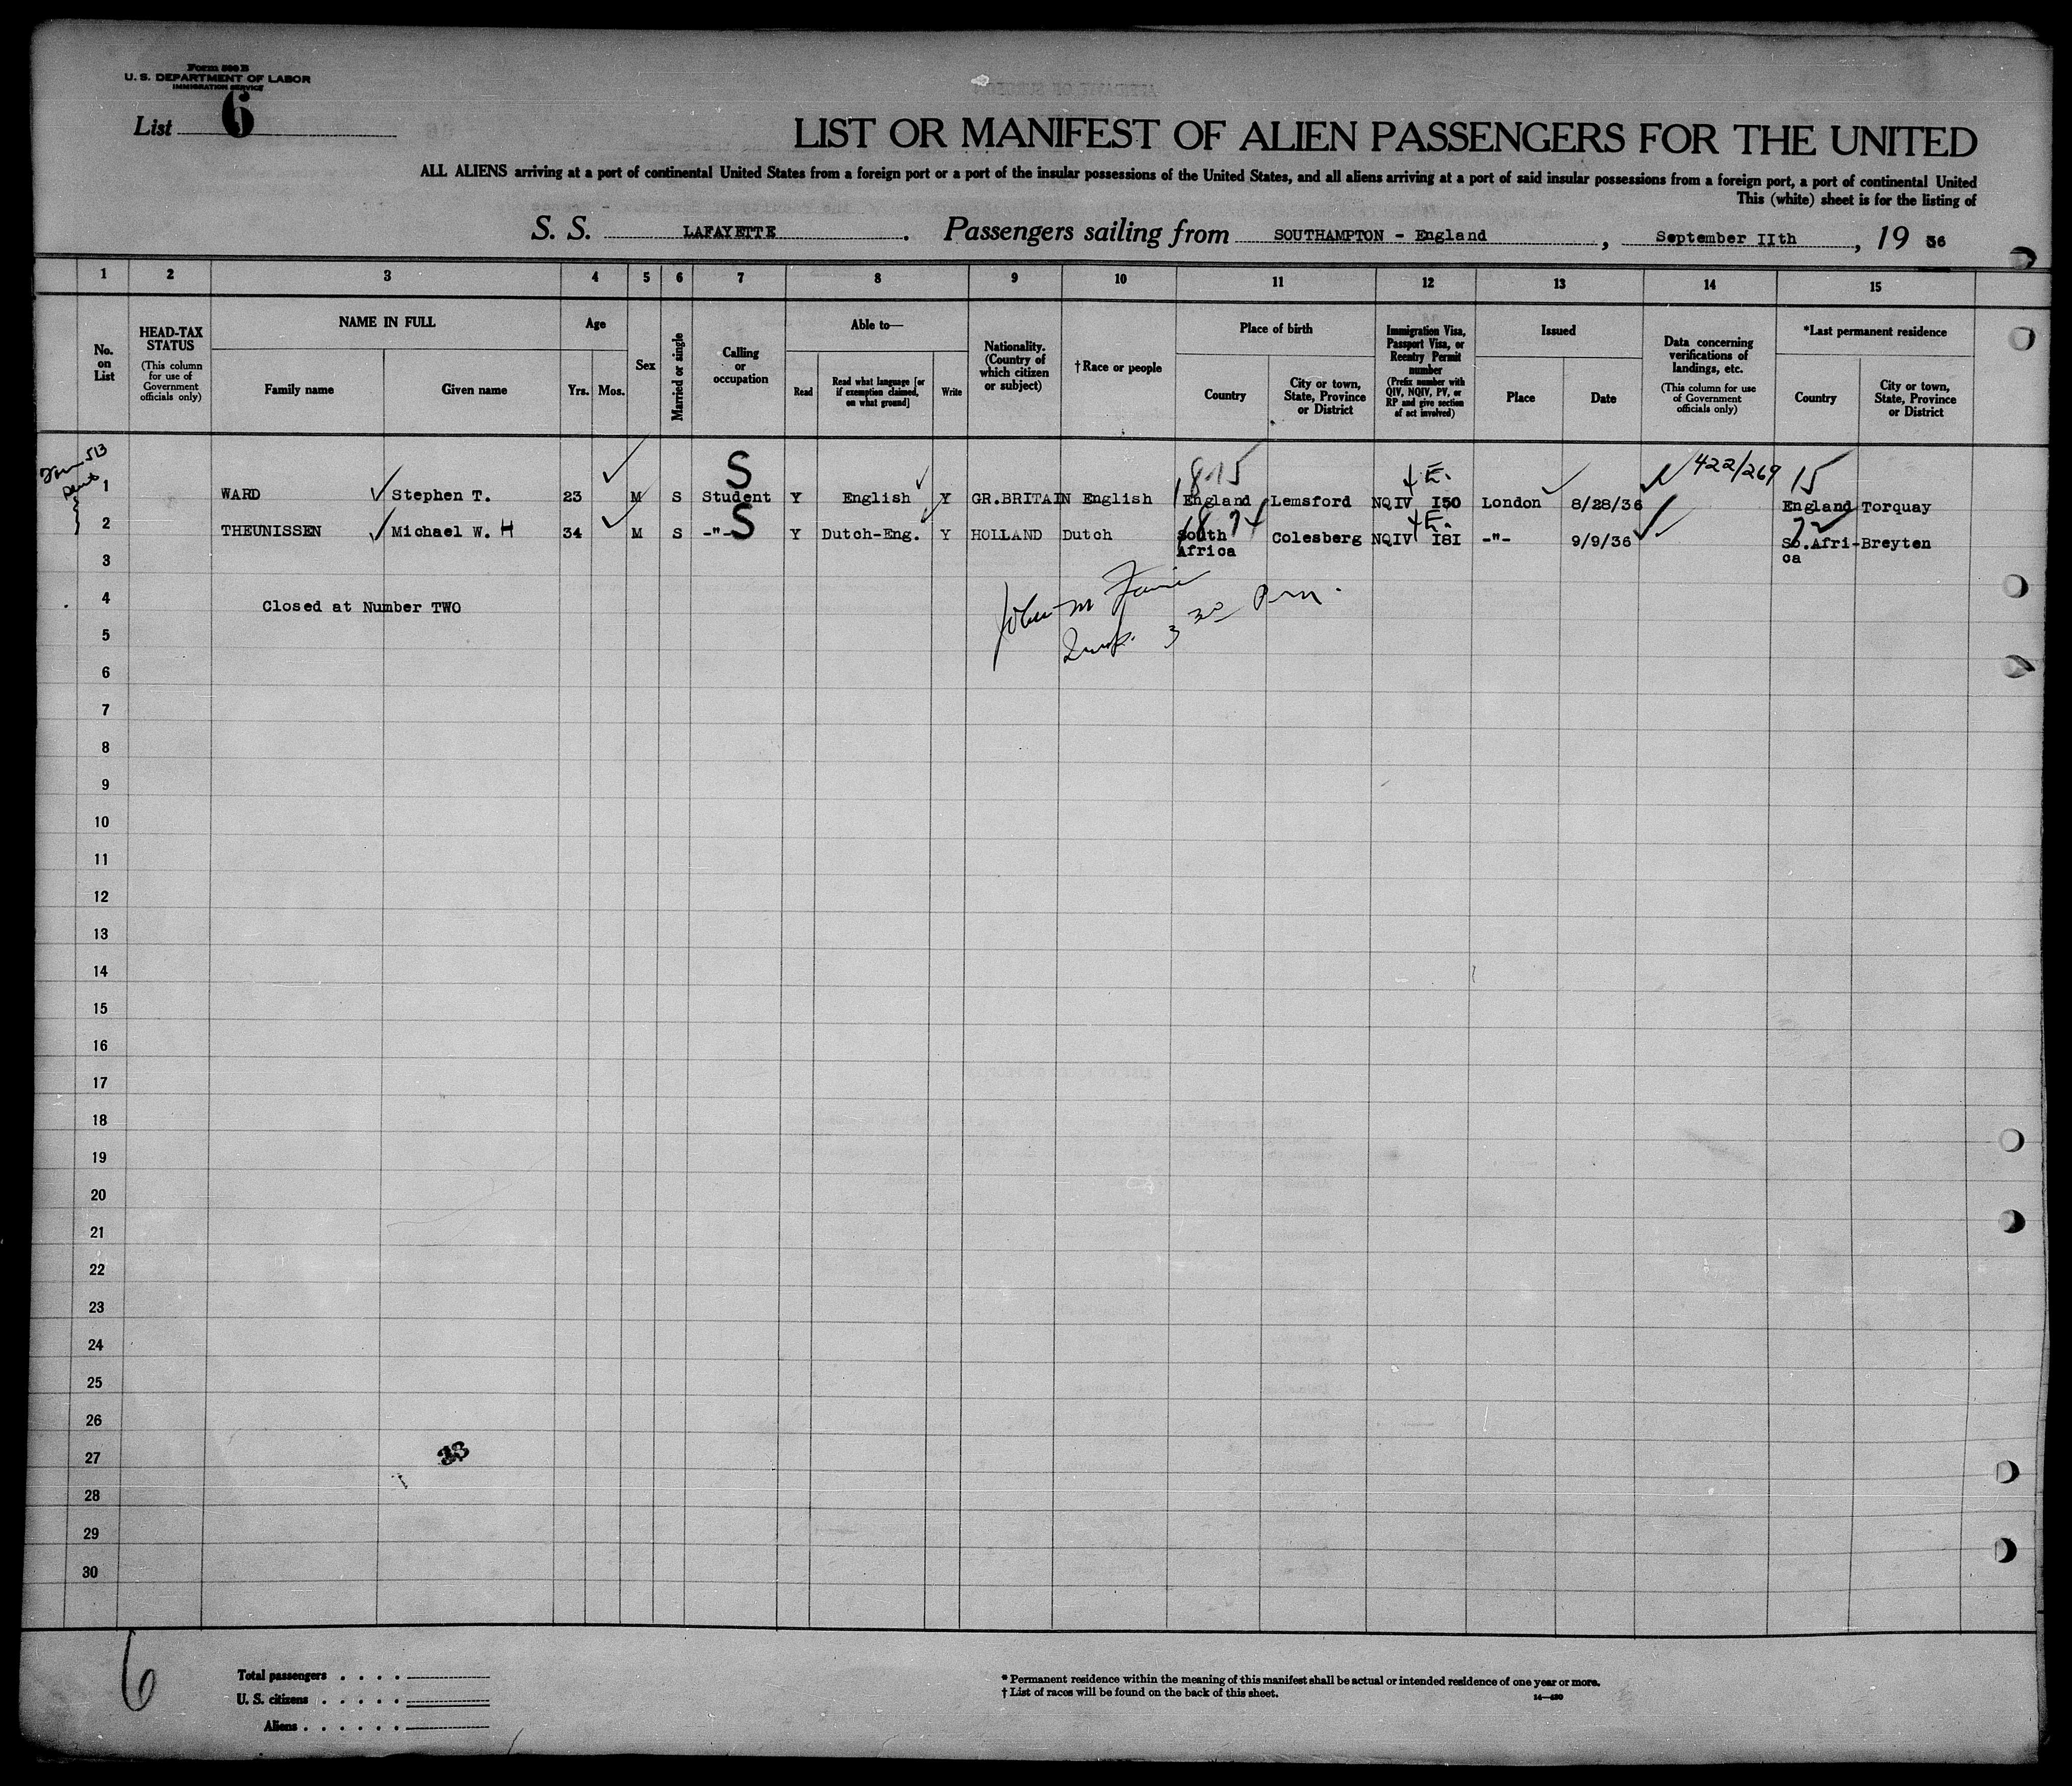 Form 500 B
U. S. DEPARTMENT OF LABOR
IMMIGRATION SERVICE
List 6
LIST OR MANIFEST OF ALIEN PASSENGERS FOR THE UNITED
ALL ALIENS arriving at a port of continental United States from a foreign port or a port of the insular possessions of the United States, and all aliens arriving at a port of said insular possessions from a foreign port, a port of continental United
This (white) sheet is for the listing of
S. S. LAFAYETTE. Passengers sailing from SOUTHAMPTON - England, September IIth, 19 36
1 2 3 4 5 6 7 8 9 10 11 12 13 14 15
No. on List
HEAD-TAX STATUS (This column for use of Government officials only)
NAME IN FULL
Family name Given name
Age
Yrs. Mos.
Sex
Married or single
Calling or occupation
Able to—
Read Read what language [or if exemption claimed, on what ground] Write
Nationality. (Country of which citizen or subject)
†Race or people
Place of birth
Country City or town, State, Province or District
Immigration Visa, Passport Visa, or Reentry Permit number (Prefix number with QIV, NQIV, PV, or RP and give section of act involved)
Issued
Place Date
Data concerning verifications of landings, etc. (This column for use of Government officials only)
*Last permanent residence
Country City or town, State, Province or District
513
S 1815 4 E. 422/269 15
1 WARD Stephen T. 23 M S Student Y English Y GR.BRITAIN English England Lemsford NQIV I50 London 8/28/36 England Torquay
S 4 E.
2 THEUNISSEN Michael W. H 34 M S -"- Y Dutch-Eng. Y HOLLAND Dutch South Africa Colesberg NQIV I8I -"- 9/9/36 So.Afri-ca Breyten
3
4 Closed at Number TWO
John M
3 30 P.m.
5
6
7
8
9
10
11
12
13
14
15
16
17
18
19
20
21
22
23
24
25
26
27
28
29
30
6
Total passengers
U. S. citizens
Aliens
* Permanent residence within the meaning of this manifest shall be actual or intended residence of one year or more.
† List of races will be found on the back of this sheet.